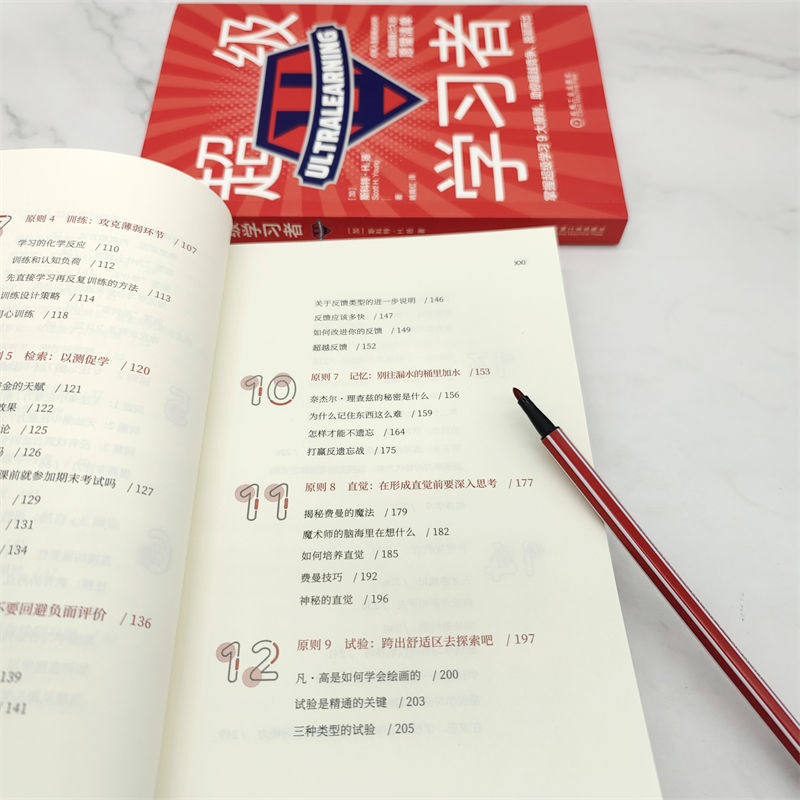 超级
学习者
ULTRALEARNING
[加]
斯科特·H. 扬
Scott H. Young
著
姚育红 译
级学习者
原则 4 训练：攻克薄弱环节 / 107
学习的化学反应 / 110
训练和认知负荷 / 112
先直接学习再反复训练的方法 / 113
训练设计策略 / 114
心训练 / 118
5 检索：以测促学 / 120
金的天赋 / 121
效果 / 122
论 / 125
吗 / 126
课前就参加期末考试吗 / 127
/ 129
/ 131
/ 134
不要回避负面评价 / 136
139
/ 141
关于反馈类型的进一步说明 / 146
反馈应该多快 / 147
如何改进你的反馈 / 149
超越反馈 / 152
10 原则 7 记忆：别往漏水的桶里加水 / 153
奈杰尔·理查兹的秘密是什么 / 156
为什么记住东西这么难 / 159
怎样才能不遗忘 / 164
打赢反遗忘战 / 175
11 原则 8 直觉：在形成直觉前要深入思考 / 177
揭秘费曼的魔法 / 179
魔术师的脑海里在想什么 / 182
如何培养直觉 / 185
费曼技巧 / 192
神秘的直觉 / 196
12 原则 9 试验：跨出舒适区去探索吧 / 197
凡·高是如何学会绘画的 / 200
试验是精通的关键 / 203
三种类型的试验 / 205